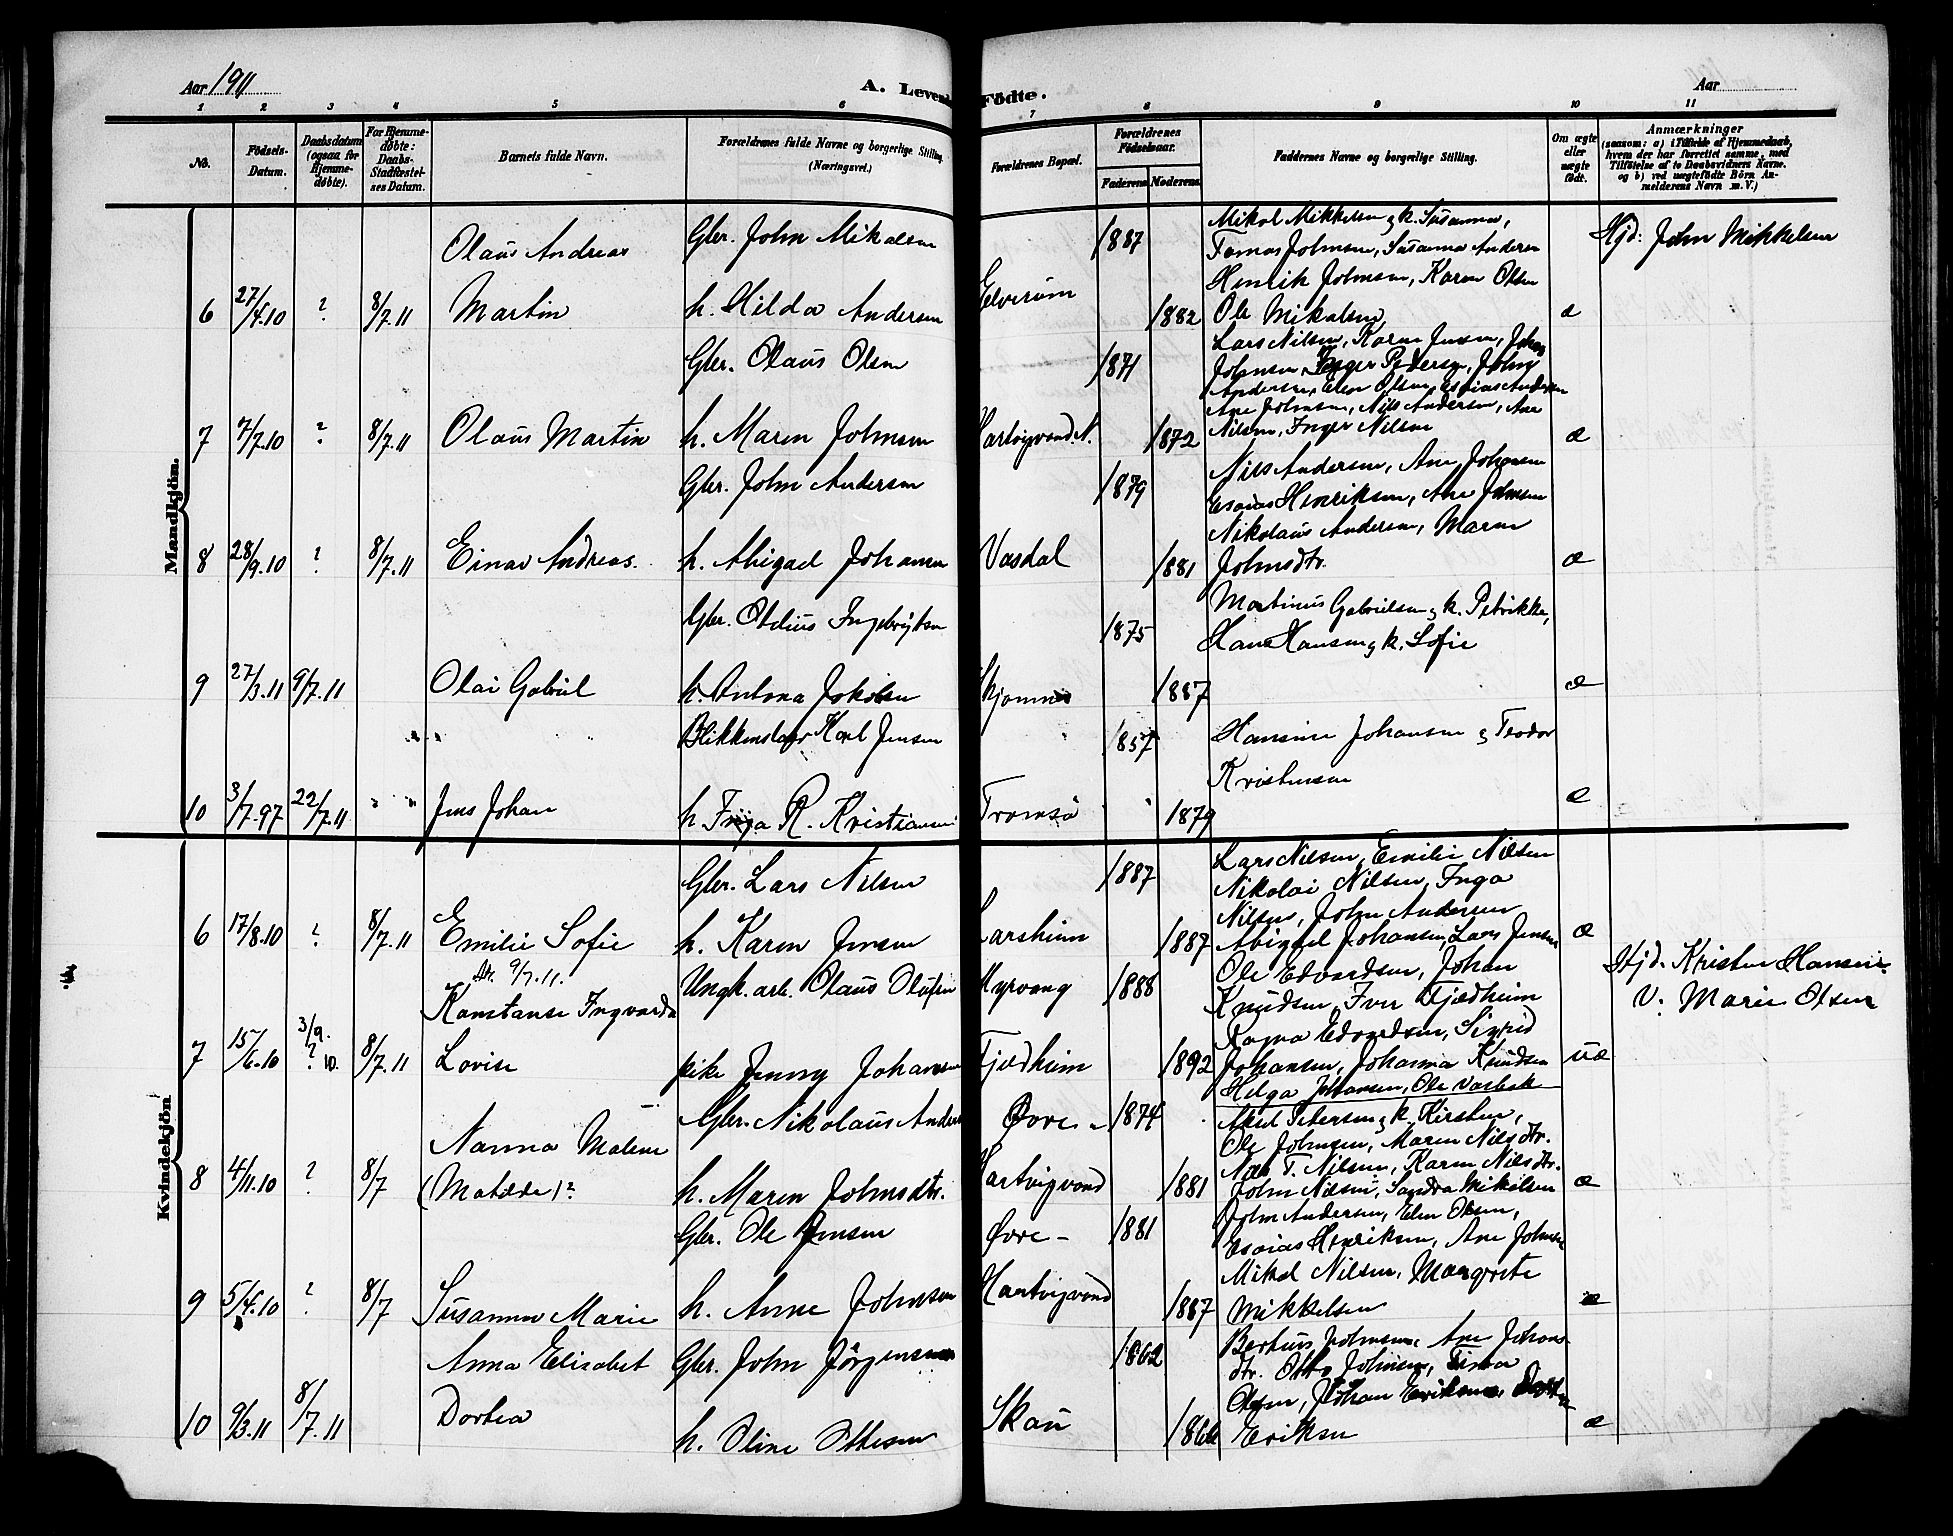 Aar 1911
A. Levende Födte.
Aar
1 2 3 4 5 6 7 8 9 10 11
No.
Födsels-Datum.
Daabsdatum (ogsaa for Hjemme-döbte).
For Hjemme-döbte: Daabs-Stadfæstel-ses Datum.
Barnets fulde Navn.
Forældrenes fulde Navne og borgerlige Stilling. (Næringsvei.)
Forældrenes Bopæl.
Forældrenes Födselsaar.
Faderens Moderens
Faddernes Navne og borgerlige Stilling.
Om ægte eller uægte födt.
Anmærkninger
(saasom: a) i Tilfælde af Hjemmedaab,
hvem der har forrettet samme, med
Tilföielse af to Daabsvidners Navne.
og b) ved uægtefödte Börn An-
melderens Navn m. V.)
Mandkjön.
Olaus Andreas Gbr. John Mikalsen 1887 Mikal Mikkelsen & k. Susanna, Hjd: John Mikkelsen
Tomas Johnsen, Susanna Andersen
Henrik Johnsen, Karen Olsen
6 27/4.10 ? 8/7.11 Martin h. Hilda Andersen Elverum 1882 Ole Mikalsen æ
Gbr. Olaus Olsen 1871 Lars Nilsen, Karen Jensen, Johan
Johnsen, Inger Pedersen, John
Andersen, Elen Olsen, Esaias Andersen
Ane Johnsen, Nils Andersen, Ane
7 7/7.10 ? 8/7.11 Olaus Martin h. Maren Johnsen Hartvigvand. N. 1872 Nilsen, Inger Nilsen æ
Gbr. John Andersen 1879 Nils Andersen, Ane Johansen
Esaias Henriksen, Ane Johnsen
Nikolaus Andersen, Maren
8 28/9.10 ? 8/7.11 Einar Andreas. h. Abigael Johansen Vasdal 1881 Johnsdtr. æ
Gbr. Otelius Ingebrigtsen 1875 Martinus Gabrielsen & k. Petrikke,
Hans Hansen & k. Sofie
9 27/3.11 9/7.11 Olai Gabriel h. Antona Jakobsen Skjomnes 1887 æ
Blikkenslager Karl Jensen 1857 Hansine Johansen & Teodor
Kristensen
10 3/7.97 22/7.11 " " Jens Johan h R. Kristiansen Tromsö 1879 æ
Kvindekjön
Gbr. Lars Nilsen 1887 Lars Nilsen, Emilie Nilsen
Nikolai Nilsen, Inga
Nilsen, John Andersen
6 17/8.10 ? 8/7.11 Emilie Sofie h. Karen Jensen Larsheim 1887 Abigael Johansen, Lars Jensen æ
9/7.11. Ungk. arb. Olaus Olufsen Myrvang 1888 Ole Edvardsen, Johan Hjd. Kristen Hansen.
Konstanse Ingvarda Knudsen, Iver Fjædheim V: Marie Olsen
Ragna Edvardsen, Sigrid
7 15/6.10 3/9. ? 10. 8/7.11 Lovise pike Jenny Johansen Fjædheim 1892 Johansen, Johanna Knudsen uæ
Helga Johansen, Ole Vasbak
Gbr. Nikolaus Andersen Övre - 1874 Aksel Petersen & k. Kirsten,
Nanna Malene Ole Johnsen, Maren Nilsdtr.
Nils T. Nilsen, Karen Nilsdtr.
8 4/11.10 ? 8/7 (Matilde)? h. Maren Johnsdtr. Hartvigvand 1881 John Nilsen, Sandra Mikalsen æ
Gbr. Ole Jensen Övre - 1881 John Andersen, Elen Olsen,
Esaias Henriksen, Ane Johnsen
Mikal Nilsen, Margrete
9 5/4.10 ? 8/7 Susanna Marie h. Anne Johnsen Hartvigvand 1887 Mikkelsen æ
Anna Elisabet Gbr. John Jörgensen 1862 Bertus Johnsen, Ane Johans-
dtr. Otto Johnsen, Tina
Olsen, Johan Eriksen,
10 9/3.11 8/7.11 Dortea h. Oline Ottesen Skau 1866 Eriksen æ